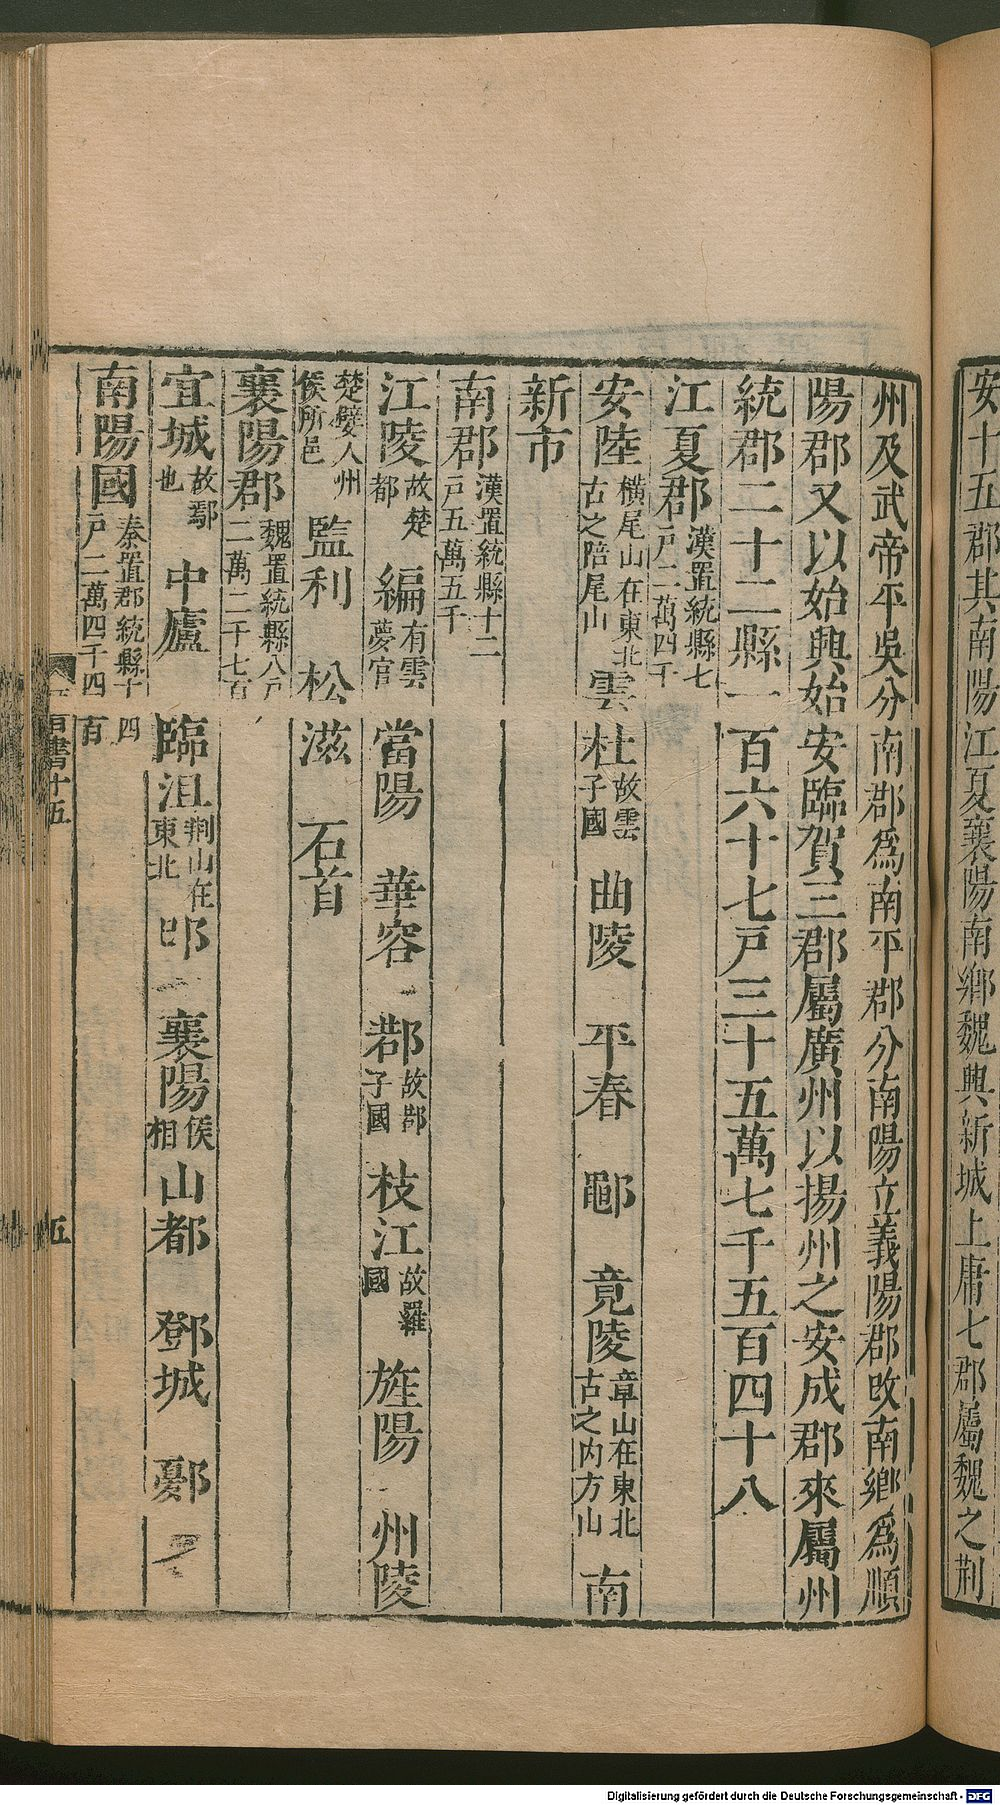 安十五郡其南陽江夏襄陽南鄉魏興新城上庸七郡屬魏之荆
州及武帝平吳分南郡爲南平郡分南陽立義陽郡改南鄉爲順
陽郡又以始興始安臨賀三郡屬廣州以揚州之安成郡來屬州
統郡二十二縣一百六十七戸三十五萬七千五百四十八
江夏郡漢置統縣七戸二萬四千
安陸橫尾山在東北古之陪尾山 雲杜故雲子國 曲陵 平春 鄳 竟陵章山在東北古之内方山 南
新市
南郡漢置統縣十二戸五萬五千
江陵故楚都 編有雲夢官 當陽 華容 鄀故鄀子國 枝江故羅國 旌陽 州陵
楚嬖人州侯所邑 監利 松滋 石首
襄陽郡魏置統縣八戸二萬二千七百
宜城故鄢也 中廬 臨沮荆山在東北 邔 襄陽侯相 山都 鄧城 鄾
南陽國秦置郡統縣十四戸二萬四千四百
晉書十五
五
Digitalisierung gefördert durch die Deutsche Forschungsgemeinschaft - DFG